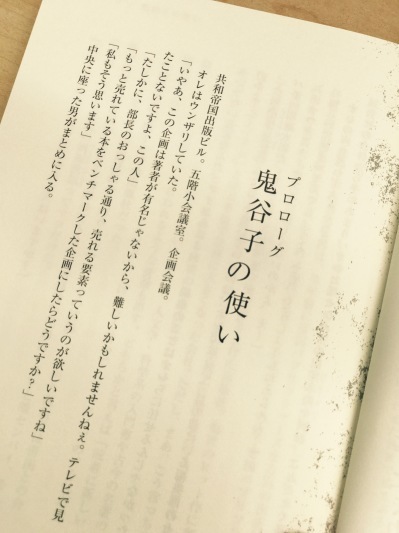 プロローグ
鬼谷子の使い
共和帝国出版ビル。五階小会議室。企画会議。
オレはウンザリしていた。
「いやあ、この企画は著者が有名じゃないから、難しいかもしれませんねぇ。テレビで見
たことないですよ、この人」
「たしかに、部長のおっしゃる通り、売れる要素っていうのが欲しいですね」
「もっと売れている本をベンチマークした企画にしたらどうですか？」
「私もそう思います」
中央に座った男がまとめに入る。